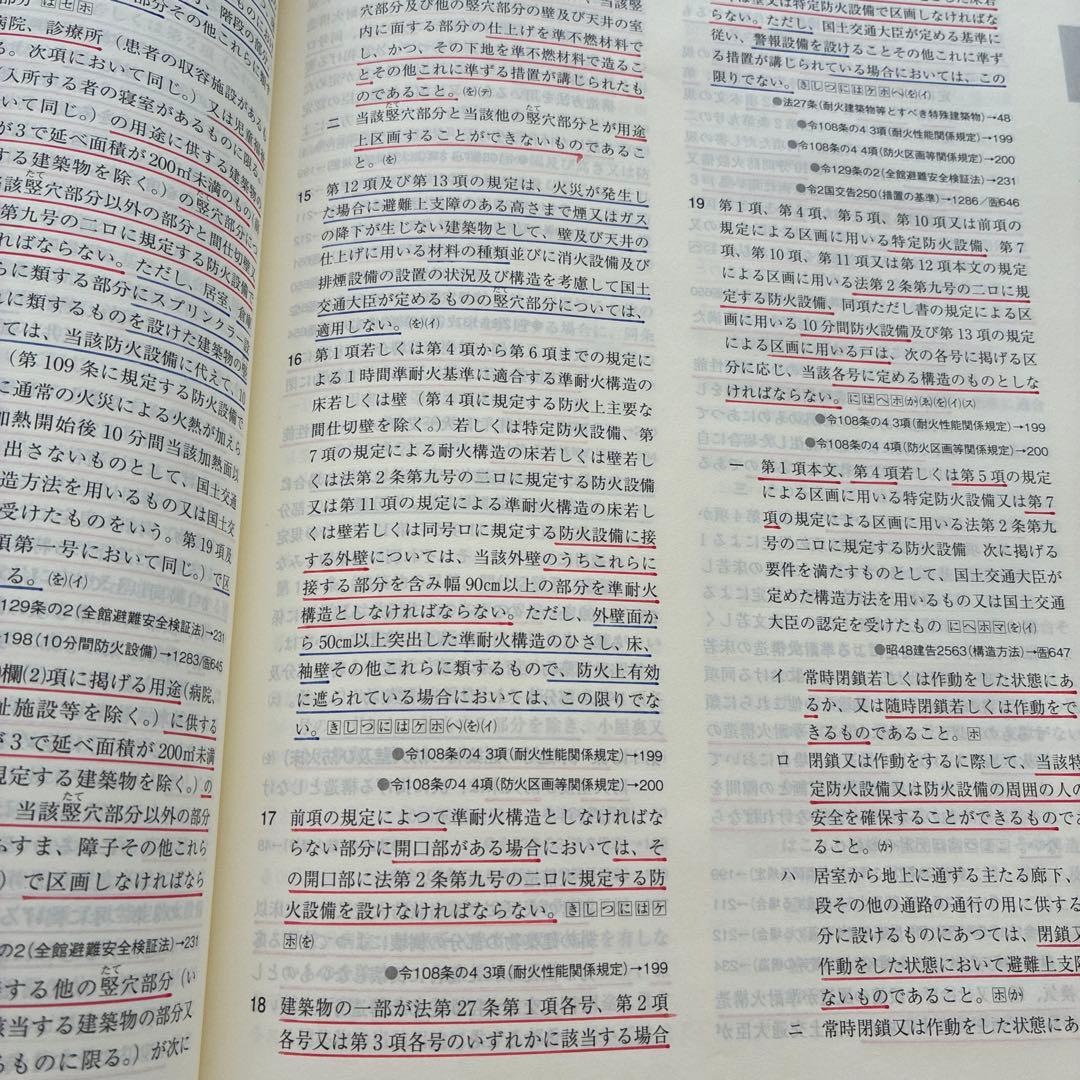 部分 はセホ
病院、診療所（患者の収容施設がある
る。次項において同じ。）又は児童福祉
入所する者の寝室があるものに限る。
いて同じ。）の用途に供する建築物の
が3で延べ面積が200㎡未満のもの
する建築物を除く。）の竪穴部分につ
当該竪穴部分以外の部分と間仕切壁又
第九号の二ロに規定する防火設備で
ればならない。ただし、居室、倉庫
らに類する部分にスプリンクラー設
れに類するものを設けた建築物の竪
ては、当該防火設備に代えて、10
（第109条に規定する防火設備で
に通常の火災による火熱が加えら
加熱開始後10分間当該加熱面以
出さないものとして、国土交通
造方法を用いるもの又は国土交
受けたものをいう。第19項及
項第一号において同じ。）で区
る。(を)(イ)
129条の2（全館避難安全検証法）→231
198（10分間防火設備）→1283/画645
欄(2)項に掲げる用途（病院、
祉施設等を除く。）に供する
が3で延べ面積が200㎡未満
規定する建築物を除く。）の
当該竪穴部分以外の部分
おすま、障子その他これら
）で区画しなければなら
の2（全館避難安全検証法）→231
する他の竪穴部分（い
該当する建築物の部分又
るものに限る。）が次に
穴部分及び他の竪穴部分の壁及び天井の室
内に面する部分の仕上げを準不燃材料で
し、かつ、その下地を準不燃材料で造るこ
とその他これに準ずる措置が講じられたも
のであること。(を)(テ)
二 当該竪穴部分と当該他の竪穴部分とが用途
上区画することができないものであるこ
と。(を)
15 第12項及び第13項の規定は、火災が発生し
た場合に避難上支障のある高さまで煙又はガス
の降下が生じない建築物として、壁及び天井の
仕上げに用いる材料の種類並びに消火設備及び
排煙設備の設置の状況及び構造を考慮して国土
交通大臣が定めるものの竪穴部分については、
適用しない。(を)(イ)
16 第1項若しくは第4項から第6項までの規定に
よる1時間準耐火基準に適合する準耐火構造の
床若しくは壁（第4項に規定する防火上主要な
間仕切壁を除く。）若しくは特定防火設備、第
7項の規定による耐火構造の床若しくは壁若し
くは法第2条第九号の二ロに規定する防火設備
又は第11項の規定による準耐火構造の床若し
くは壁若しくは同号ロに規定する防火設備に接
する外壁については、当該外壁のうちこれらに
接する部分を含み幅90cm以上の部分を準耐火
構造としなければならない。ただし、外壁面か
ら50cm以上突出した準耐火構造のひさし、床、
袖壁その他これらに類するもので、防火上有効
に遮られている場合においては、この限りでな
い。きしつにはケホ(へ)(を)(イ)
●令108条の4 3項（耐火性能関係規定）→199
●令108条の4 4項（防火区画等関係規定）→200
17 前項の規定によつて準耐火構造としなければな
らない部分に開口部がある場合においては、そ
の開口部に法第2条第九号の二ロに規定する防
火設備を設けなければならない。きしつにはケ
ホ(を)
●令108条の4 3項（耐火性能関係規定）→199
18 建築物の一部が法第27条第1項各号、第2項
各号又は第3項各号のいずれかに該当する場合
は壁又は特定防火設備で区画しなければな
らない。ただし、国土交通大臣が定める基準に
従い、警報設備を設けることその他これに準ず
る措置が講じられている場合においては、この
限りでない。きしつにはケホへ(を)(イ)
●法27条（耐火建築物等とすべき特殊建築物）→48
●令108条の4 3項（耐火性能関係規定）→199
●令108条の4 4項（防火区画等関係規定）→200
●令129条の2（全館避難安全検証法）→231
●令2国交告250（措置の基準）→1286/画646
19 第1項、第4項、第5項、第10項又は前項の
規定による区画に用いる特定防火設備、第7
項、第10項、第11項又は第12項本文の規定
による区画に用いる法第2条第九号の二ロに規
定する防火設備、同項ただし書の規定による区
画に用いる10分間防火設備及び第13項の規定
による区画に用いる戸は、次の各号に掲げる区
分に応じ、当該各号に定める構造のものとしな
ければならない。にはヘホ(か)(ネ)(を)(イ)(ス)
●令108条の4 3項（耐火性能関係規定）→199
●令108条の4 4項（防火区画等関係規定）→200
一 第1項本文、第4項若しくは第5項の規定
による区画に用いる特定防火設備又は第7
項の規定による区画に用いる法第2条第九
号の二ロに規定する防火設備 次に掲げる
要件を満たすものとして、国土交通大臣が
定めた構造方法を用いるもの又は国土交通
大臣の認定を受けたもの にヘホマ(を)(イ)
●昭48建告2563（構造方法）→画647
イ 常時閉鎖若しくは作動をした状態にあ
るか、又は随時閉鎖若しくは作動をで
きるものであること。ホ
ロ 閉鎖又は作動をするに際して、当該特
定防火設備又は防火設備の周囲の人の
安全を確保することができるものであ
ること。(か)
ハ 居室から地上に通ずる主たる廊下、
段その他の通路の通行の用に供する
分に設けるものにあつては、閉鎖又
作動をした状態において避難上支障
ないものであること。ホ(か)
ニ 常時閉鎖又は作動をした状態にあ